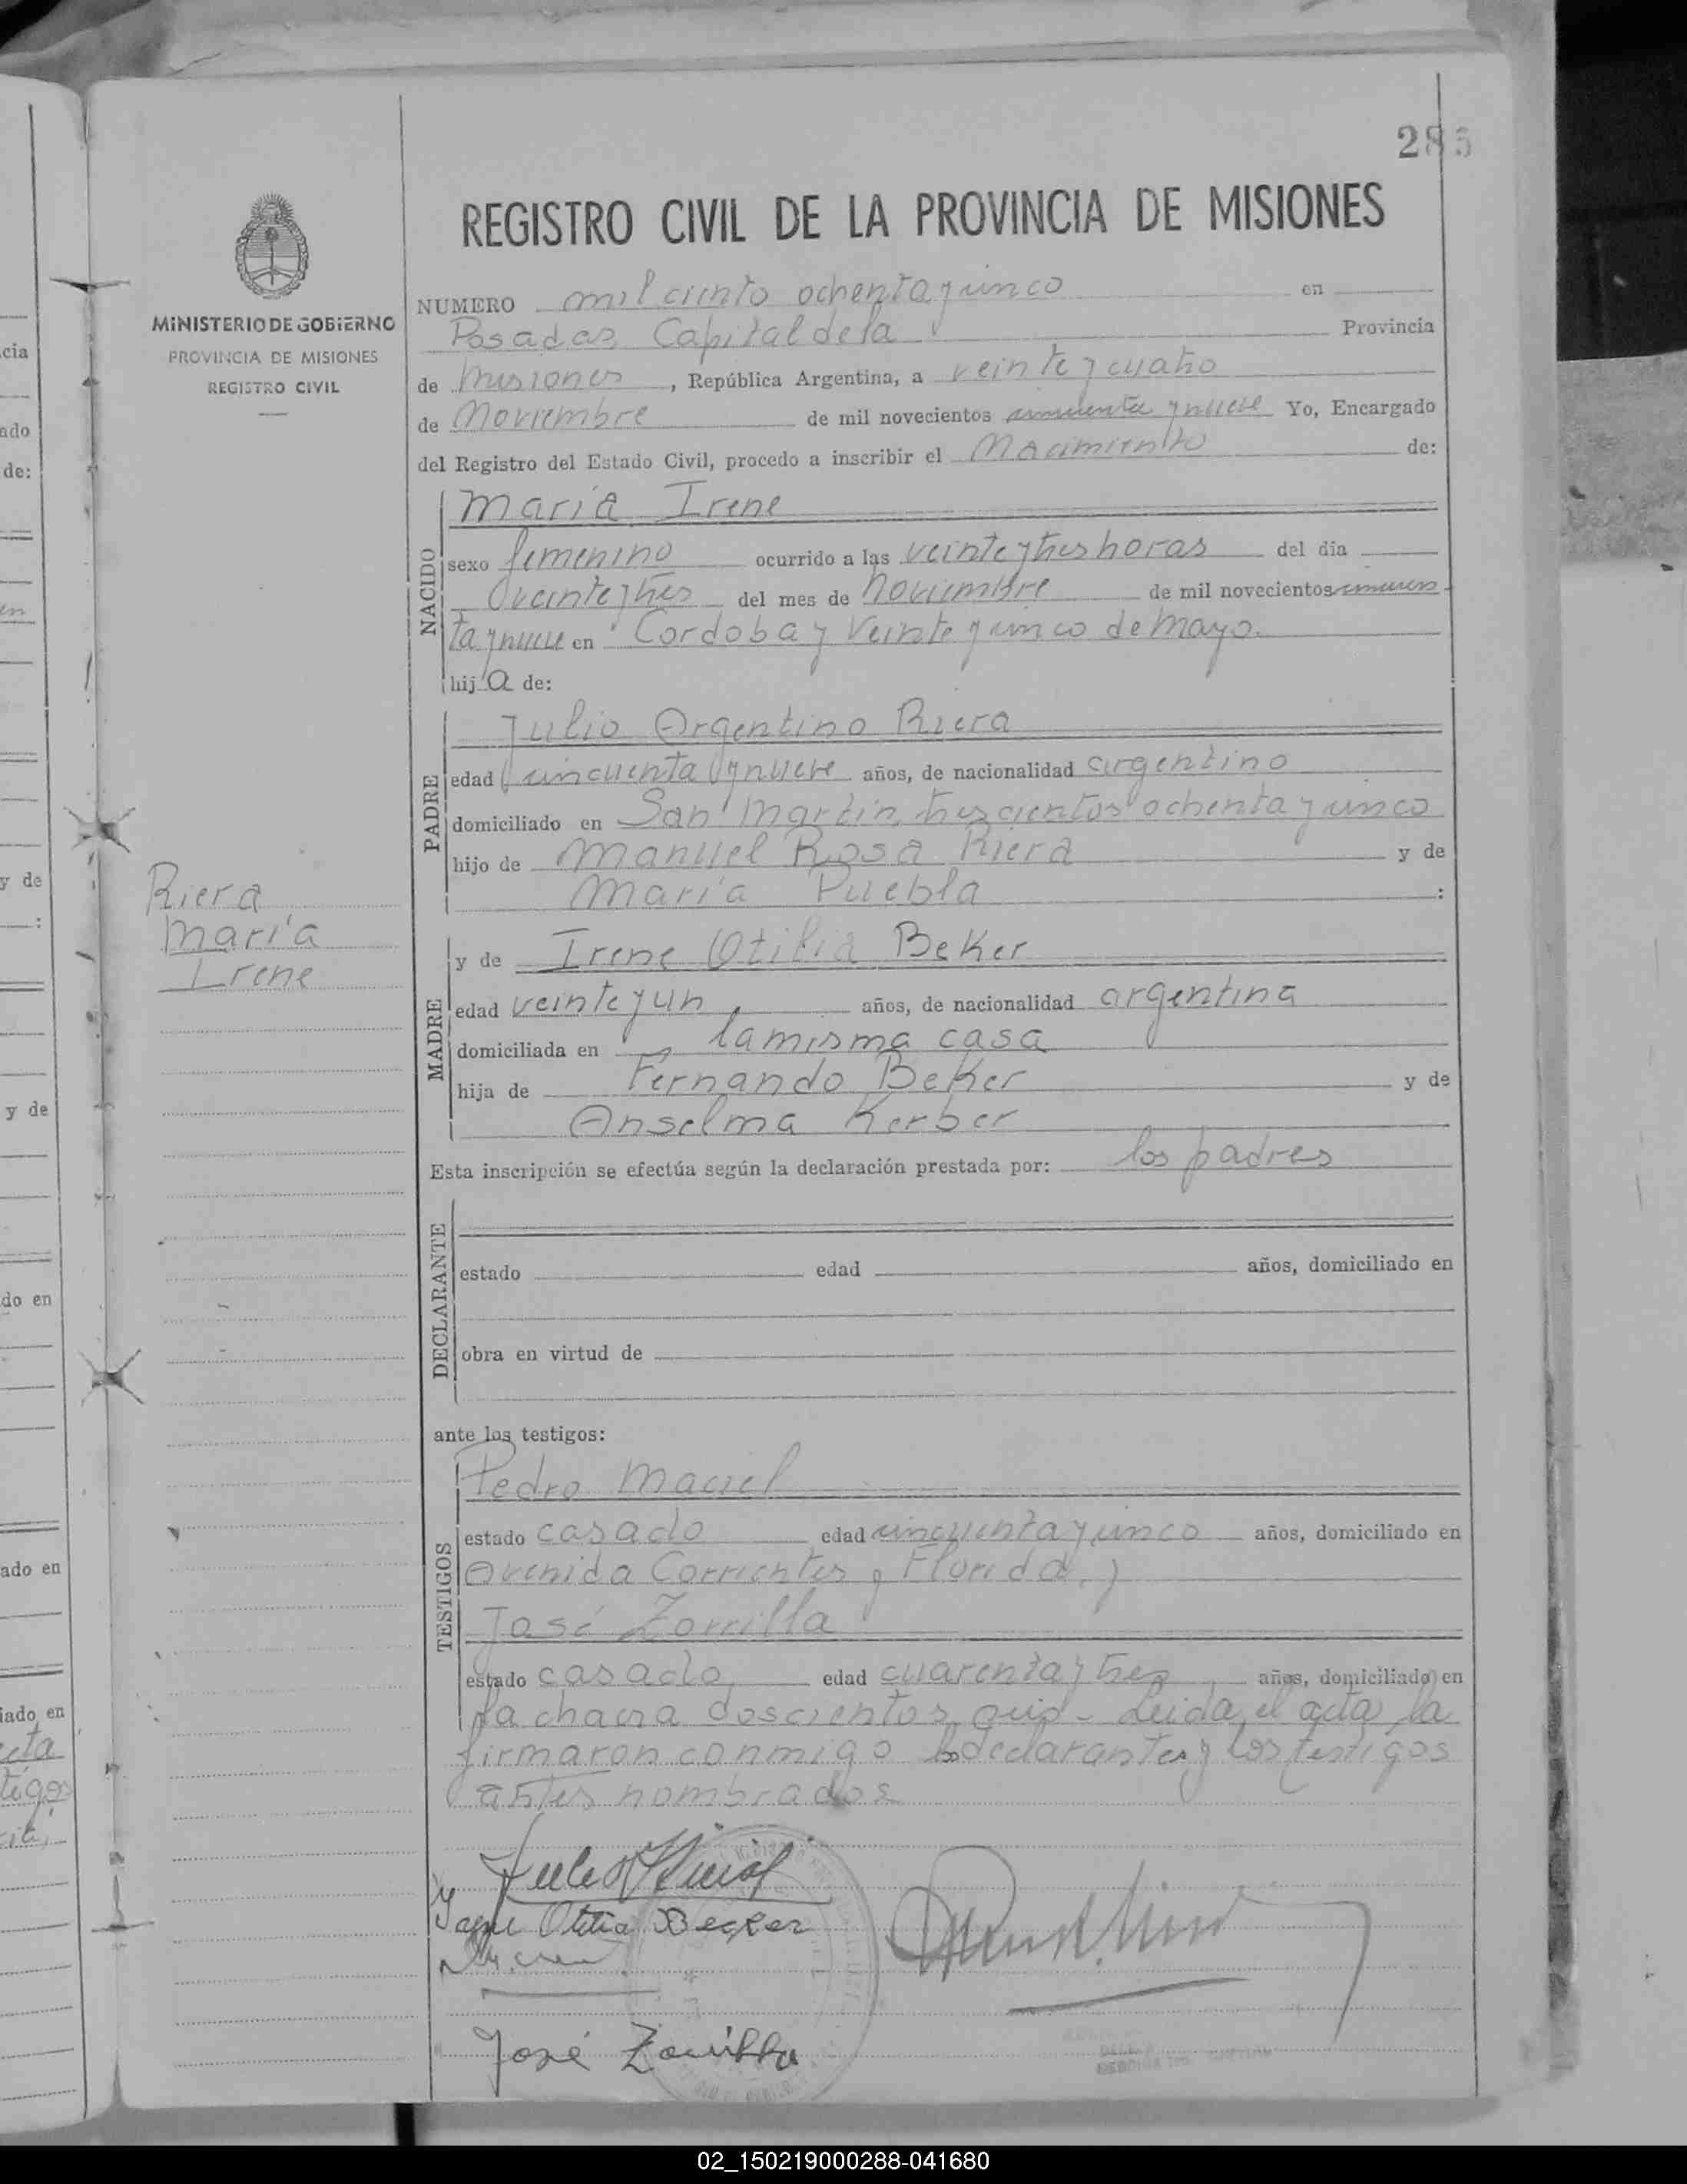 285
REGISTRO CIVIL DE LA PROVINCIA DE MISIONES
MINISTERIO DE GOBIERNO
PROVINCIA DE MISIONES
REGISTRO CIVIL
NUMERO mil ciento ochenta y cinco en
Posadas, Capital de la Provincia
de Misiones, República Argentina, a veinte y cuatro
de Noviembre de mil novecientos cincuenta y nueve Yo, Encargado
del Registro del Estado Civil, procedo a inscribir el Nacimiento de:
NACIDO
María Irene
sexo femenino ocurrido a las veinte y tres horas del día
veinte y tres del mes de noviembre de mil novecientos cincuen
ta y nueve en Cordoba y Veinte y cinco de Mayo.
hija de:
PADRE
Julio Argentino Riera
edad cincuenta y nueve años, de nacionalidad argentino
domiciliado en San Martín, trescientos ochenta y cinco
hijo de Manuel Rosa Riera y de
María Puebla :
Riera
María
Irene
MADRE
y de Irene Otilia Beker
edad veinte y un años, de nacionalidad argentina
domiciliada en la misma casa
hija de Fernando Beker y de
Anselma Kerber
Esta inscripción se efectúa según la declaración prestada por: los padres
DECLARANTE
estado edad años, domiciliado en
obra en virtud de
ante los testigos:
TESTIGOS
Pedro Maciel
estado casado edad cincuenta y cinco años, domiciliado en
Avenida Corrientes y Florida y
José Zorrilla
estado casado edad cuarenta y tres años, domiciliado en
la chacra doscientos seis - Leida el acta, la
firmaron conmigo los declarantes y los testigos
antes nombrados
Otilia Becker
José Zorrilla
cia
ado
de:
en
y de
:
y de
do en
ado en
iado en
acta
tigos
02_150219000288-041680